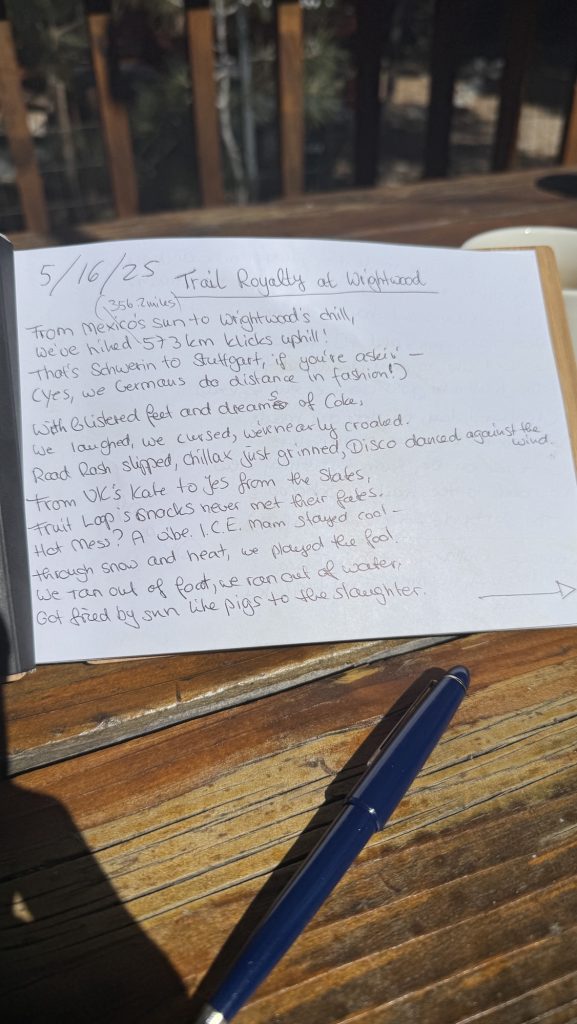 5/16/25 Trail Royalty at Wrightwood
(356.2 miles)
From Mexico's sun to Wrightwood's chill,
We've hiked 573 km klicks uphill!
That's Schwerin to Stuttgart, if you're askin' –
(Yes, we Germans do distance in fashion!)
With Blistered feet and dreams of Coke,
We laughed, we cursed, we nearly croaked.
Road Rash slipped, chillax just grinned, Disco danced against the wind.
From UK's Kate to Jes from the States,
Fruit Loop's snacks never met their fates.
Hot Mess? A vibe. I.C.E. Mam stayed cool –
through snow and heat, we played the fool.
We ran out of food, we ran out of water,
Got fried by sun like pigs to the slaughter.